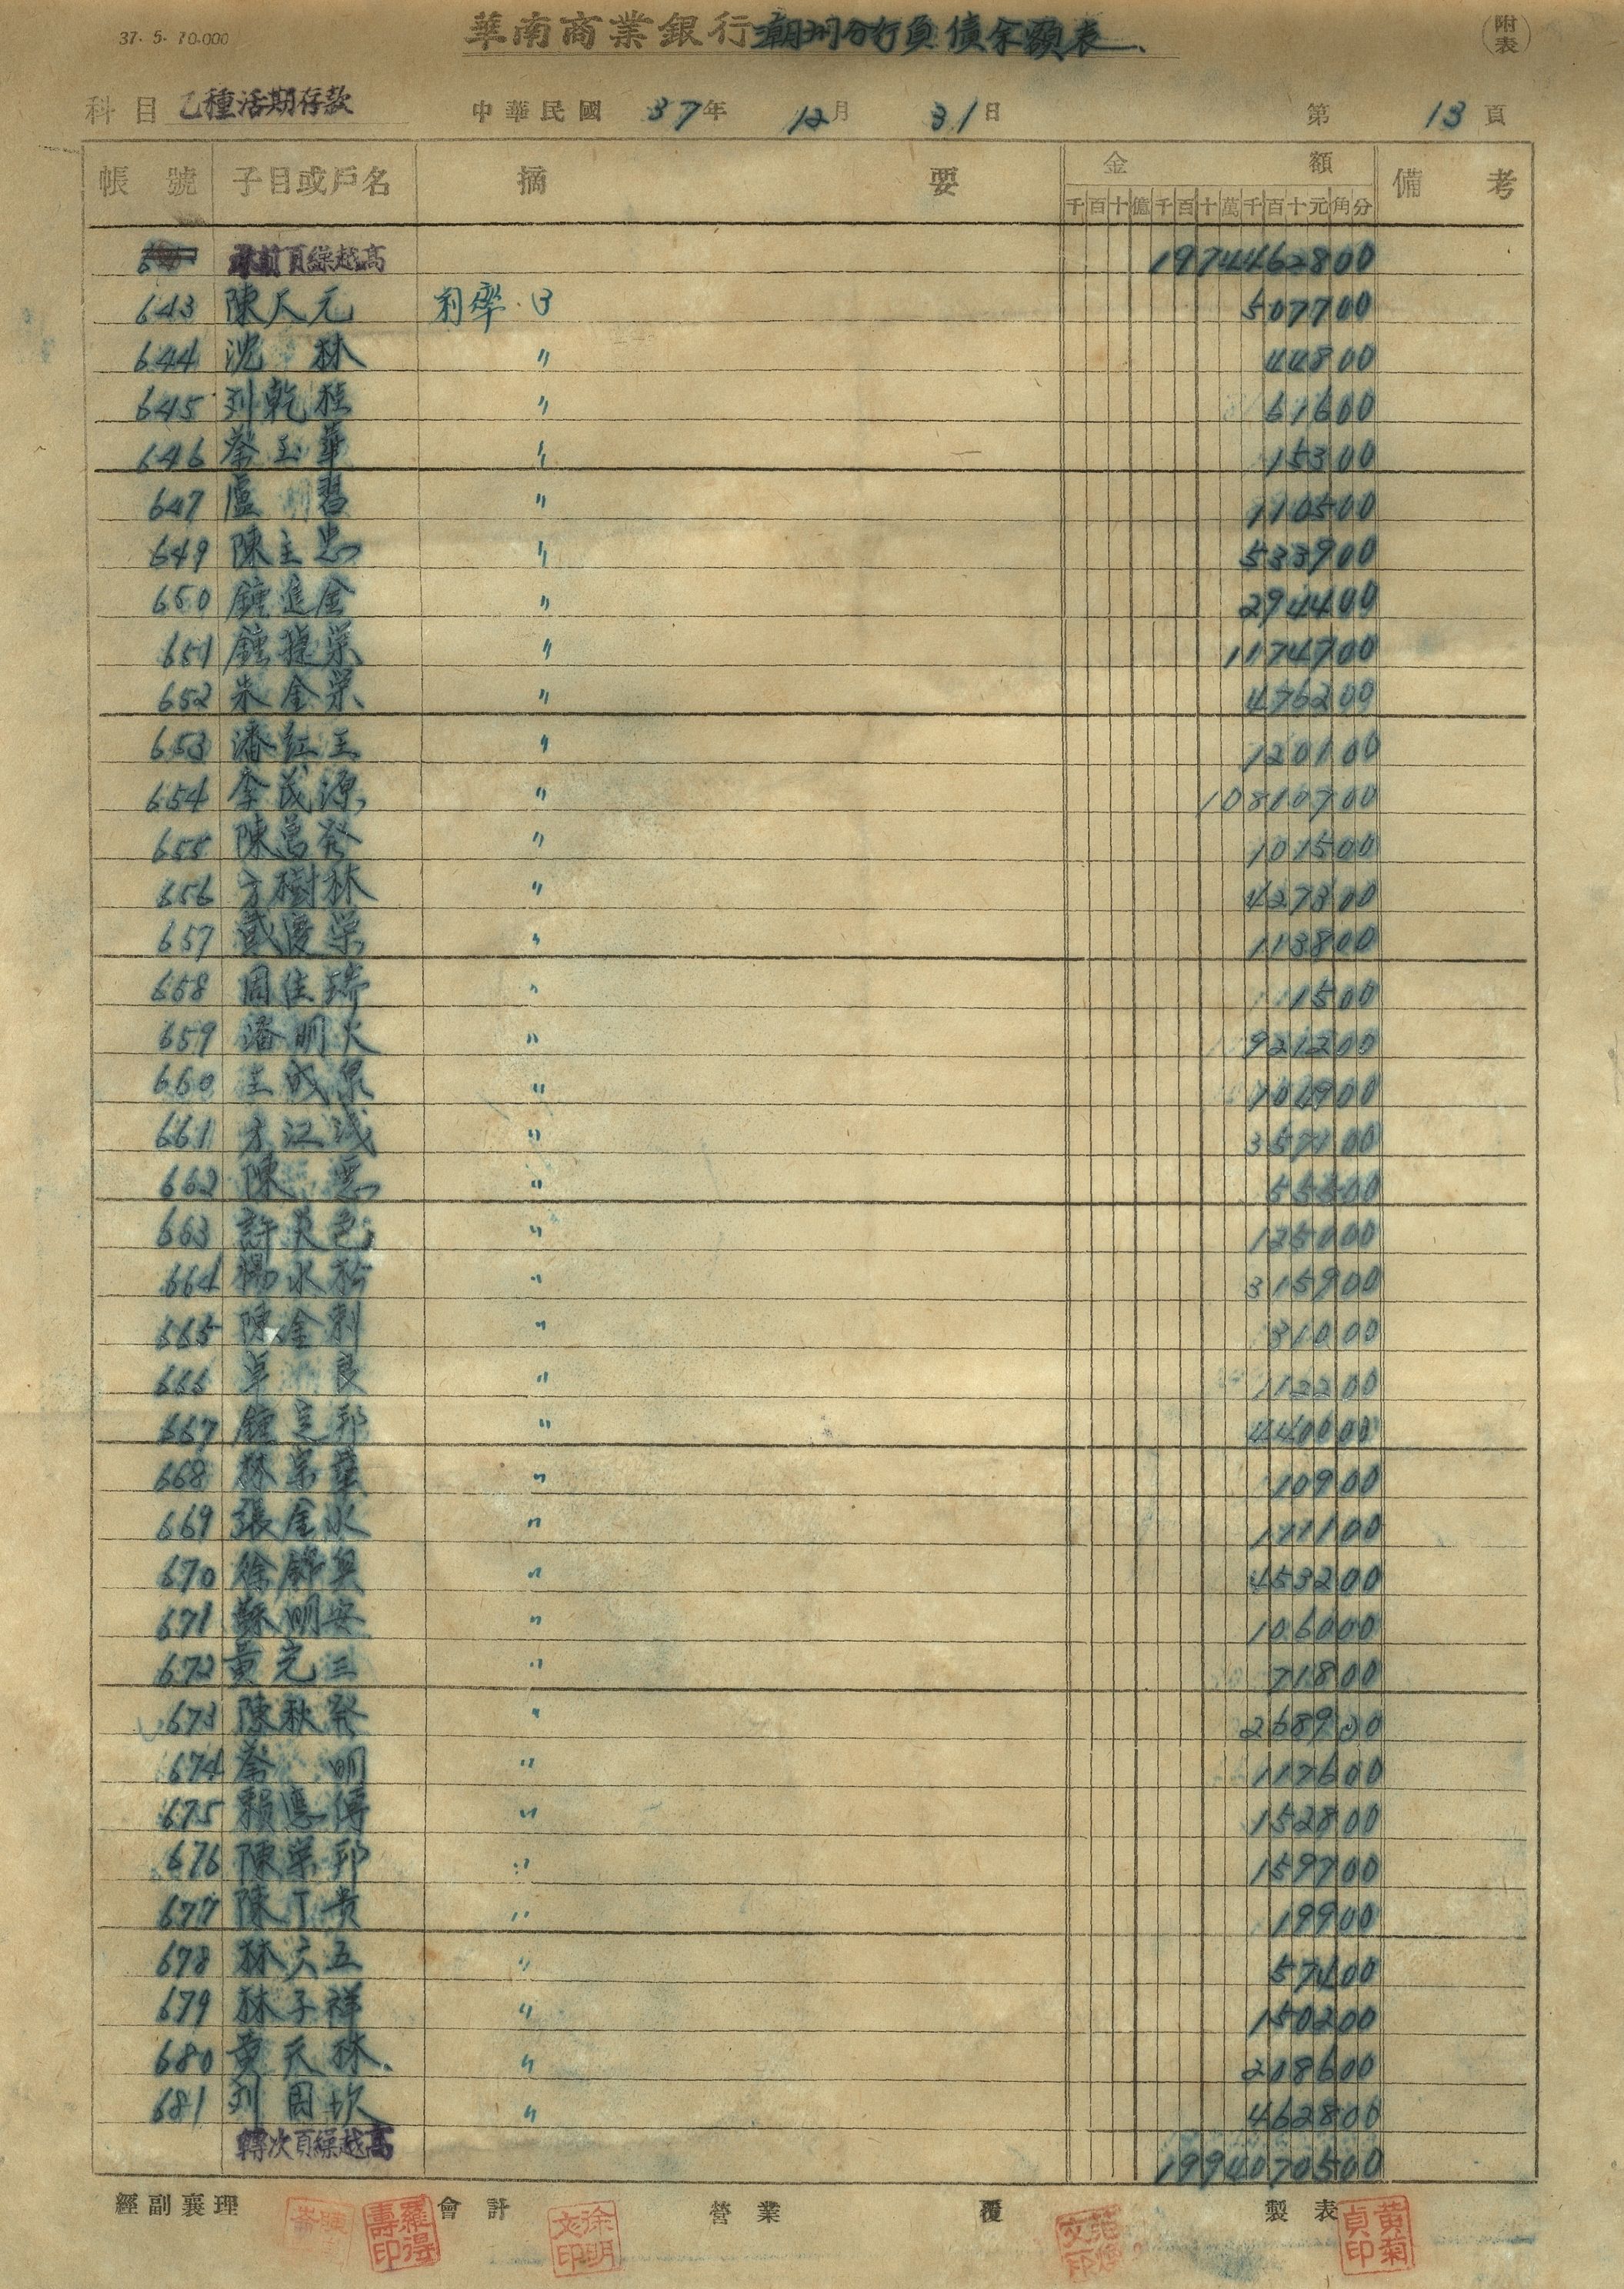 37. 5. 10.000
華南商業銀行潮州分行負債余額表 附表
科目 乙種活期存款 中華民國 37年 12月 31日 第 13 頁
帳號 子目或戶名 摘要 金額 備考
千百十億千百十萬千百十元角分
承前頁繰越高 1974462800
643 陳天元 利率·B 507700
644 沈 林 〃 44800
645 列乾 〃 61600
646 蔡玉華 〃 15300
647 盧 習 〃 110500
649 陳主忠 〃 533900
650 鍾進金 〃 294400
651 鍾 榮 〃 1174700
652 朱金榮 〃 476200
653 潘紅玉 〃 120100
654 李茂源 〃 10810700
655 陳萬發 〃 101500
656 方樹林 〃 427300
657 戴慶榮 〃 113800
658 周佳瑞 〃 11500
659 潘明火 〃 921200
660 王成泉 〃 101900
661 方江淺 〃 357100
662 陳 〃
663 許英色 〃 125000
664 楊水松 〃 315900
665 陳金剌 〃 31000
666 卓 良 〃 112200
667 鍾定邦 〃 440000
668 林榮華 〃 10900
669 張金水 〃 117100
670 徐錦興 〃 453200
671 蘇明安 〃 106000
672 黃完三 〃 71800
673 陳秋發 〃 268900
674 蔡 明 〃 117600
675 賴應傳 〃 152800
676 陳榮邦 〃 159700
677 陳丁貴 〃 19900
678 林六五 〃 57400
679 林子祥 〃 150200
680 黃天林 〃 208600
681 列 坎 〃 462800
轉次頁繰越高 1994070500
經副襄理 羅得壽印 會計 徐明文印 營業 覆 製表 黃菊貞印